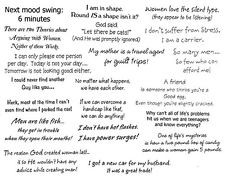 Next mood swing:
6 minutes
I am in shape.
Round IS a shape isn't it?
Women love the silent type.
(they appear to be listening)
There are two Theories about
Arguing with Women.
Neither of them Work.
God said
"Let there be cats!"
(And He was promptly ignored)
I don't suffer from Stress,
I am a carrier.
I can only please one person
per day. Today is not your day....
Tomorrow is not looking good either.
My mother is a travel agent
for guilt trips!
So many men...
so few who can
afford me!
I could never find another
Guy like you...
No matter what happens,
we have each other.
A friend
is someone who thinks
you're a Good Egg.
Even though you're slightly cracked.
Mark, most of the time I can't
even find where I parked the car!
If we can overcome a
handicap like that,
we can do anything!
Why can't all of life's problems
hit us when we are teenagers
and know everything?
Men are like fish...
they get in trouble
when they open their mouths!
I don't have hot flashes.
I have power surges!
One of life's mysteries
is how a two pound box of candy
can make a woman gain 5 pounds.
The reason God created woman last...
is so He wouldn't have any
advice while creating man!
I got a new car for my husband.
It was a great trade!